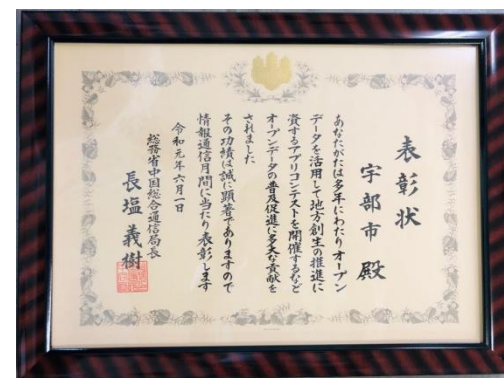 表彰状
宇部市 殿
あなたがたは多年にわたりオープン
データを活用して地方創生の推進に
資するアプリコンテストを開催するなど
オープンデータの普及促進に多大な貢献を
されました
その功績は誠に顕著でありますので
情報通信月間に当たり表彰します
令和元年六月一日
総務省中国総合通信局長
長塩義樹